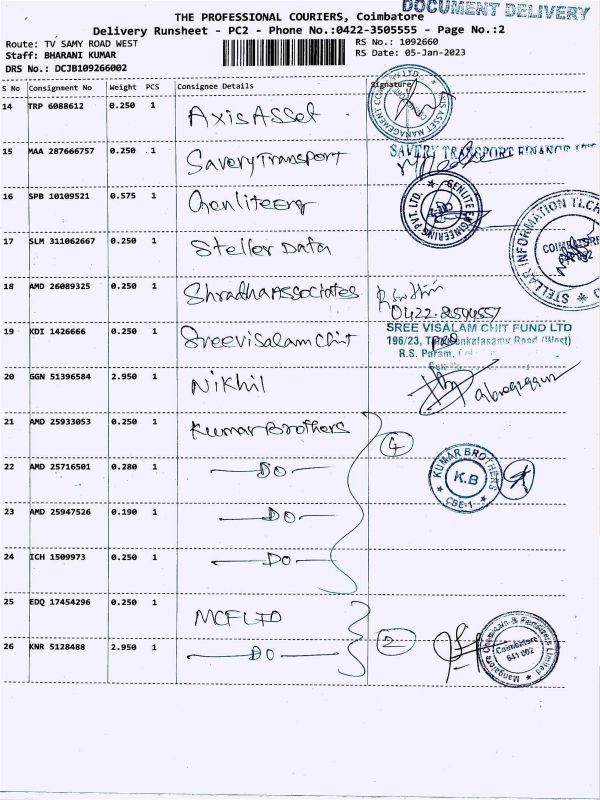 DOCUMENT DELIVERY
THE PROFESSIONAL COURIERS, Coimbatore
Delivery Runsheet - PC2 - Phone No.:0422-3505555 - Page No.:2
Route: TV SAMY ROAD WEST
RS No.: 1092660
Staff: BHARANI KUMAR
RS Date: 05-Jan-2023
DRS No.: DCJB109266002
S No Consignment No Weight PCS Consignee Details Signature
14 TRP 6088612 0.250 1 Axis Asset
15 MAA 287666757 0.250 1 Savery Transport SAVERY TRANSPORT FINANCE
16 SPB 10109521 0.575 1 Genlite Eng GENLITE ENGINEERING PVT. LTD.
17 SLM 311062667 0.250 1 Steller Data STELLAR INFORMATION
18 AMD 26089325 0.250 1 Shradha Associates
19 KDI 1426666 0.250 1 Sreevisalam Chit SREE VISALAM CHIT FUND LTD
196/23, Road (West)
R.S. Puram,
20 GGN 51396584 2.950 1 Nikhil
21 AMD 25933053 0.250 1 Kumar Brothers 4
22 AMD 25716501 0.280 1 DO KUMAR BROTHERS K.B CBE-1
23 AMD 25947526 0.190 1 DO
24 ICH 1509973 0.250 1 DO
25 EDQ 17454296 0.250 1 MCF LTD
26 KNR 5128488 2.950 1 DO 2 Mangalore Chemicals & Fertilizers Limited Coimbatore 641 002